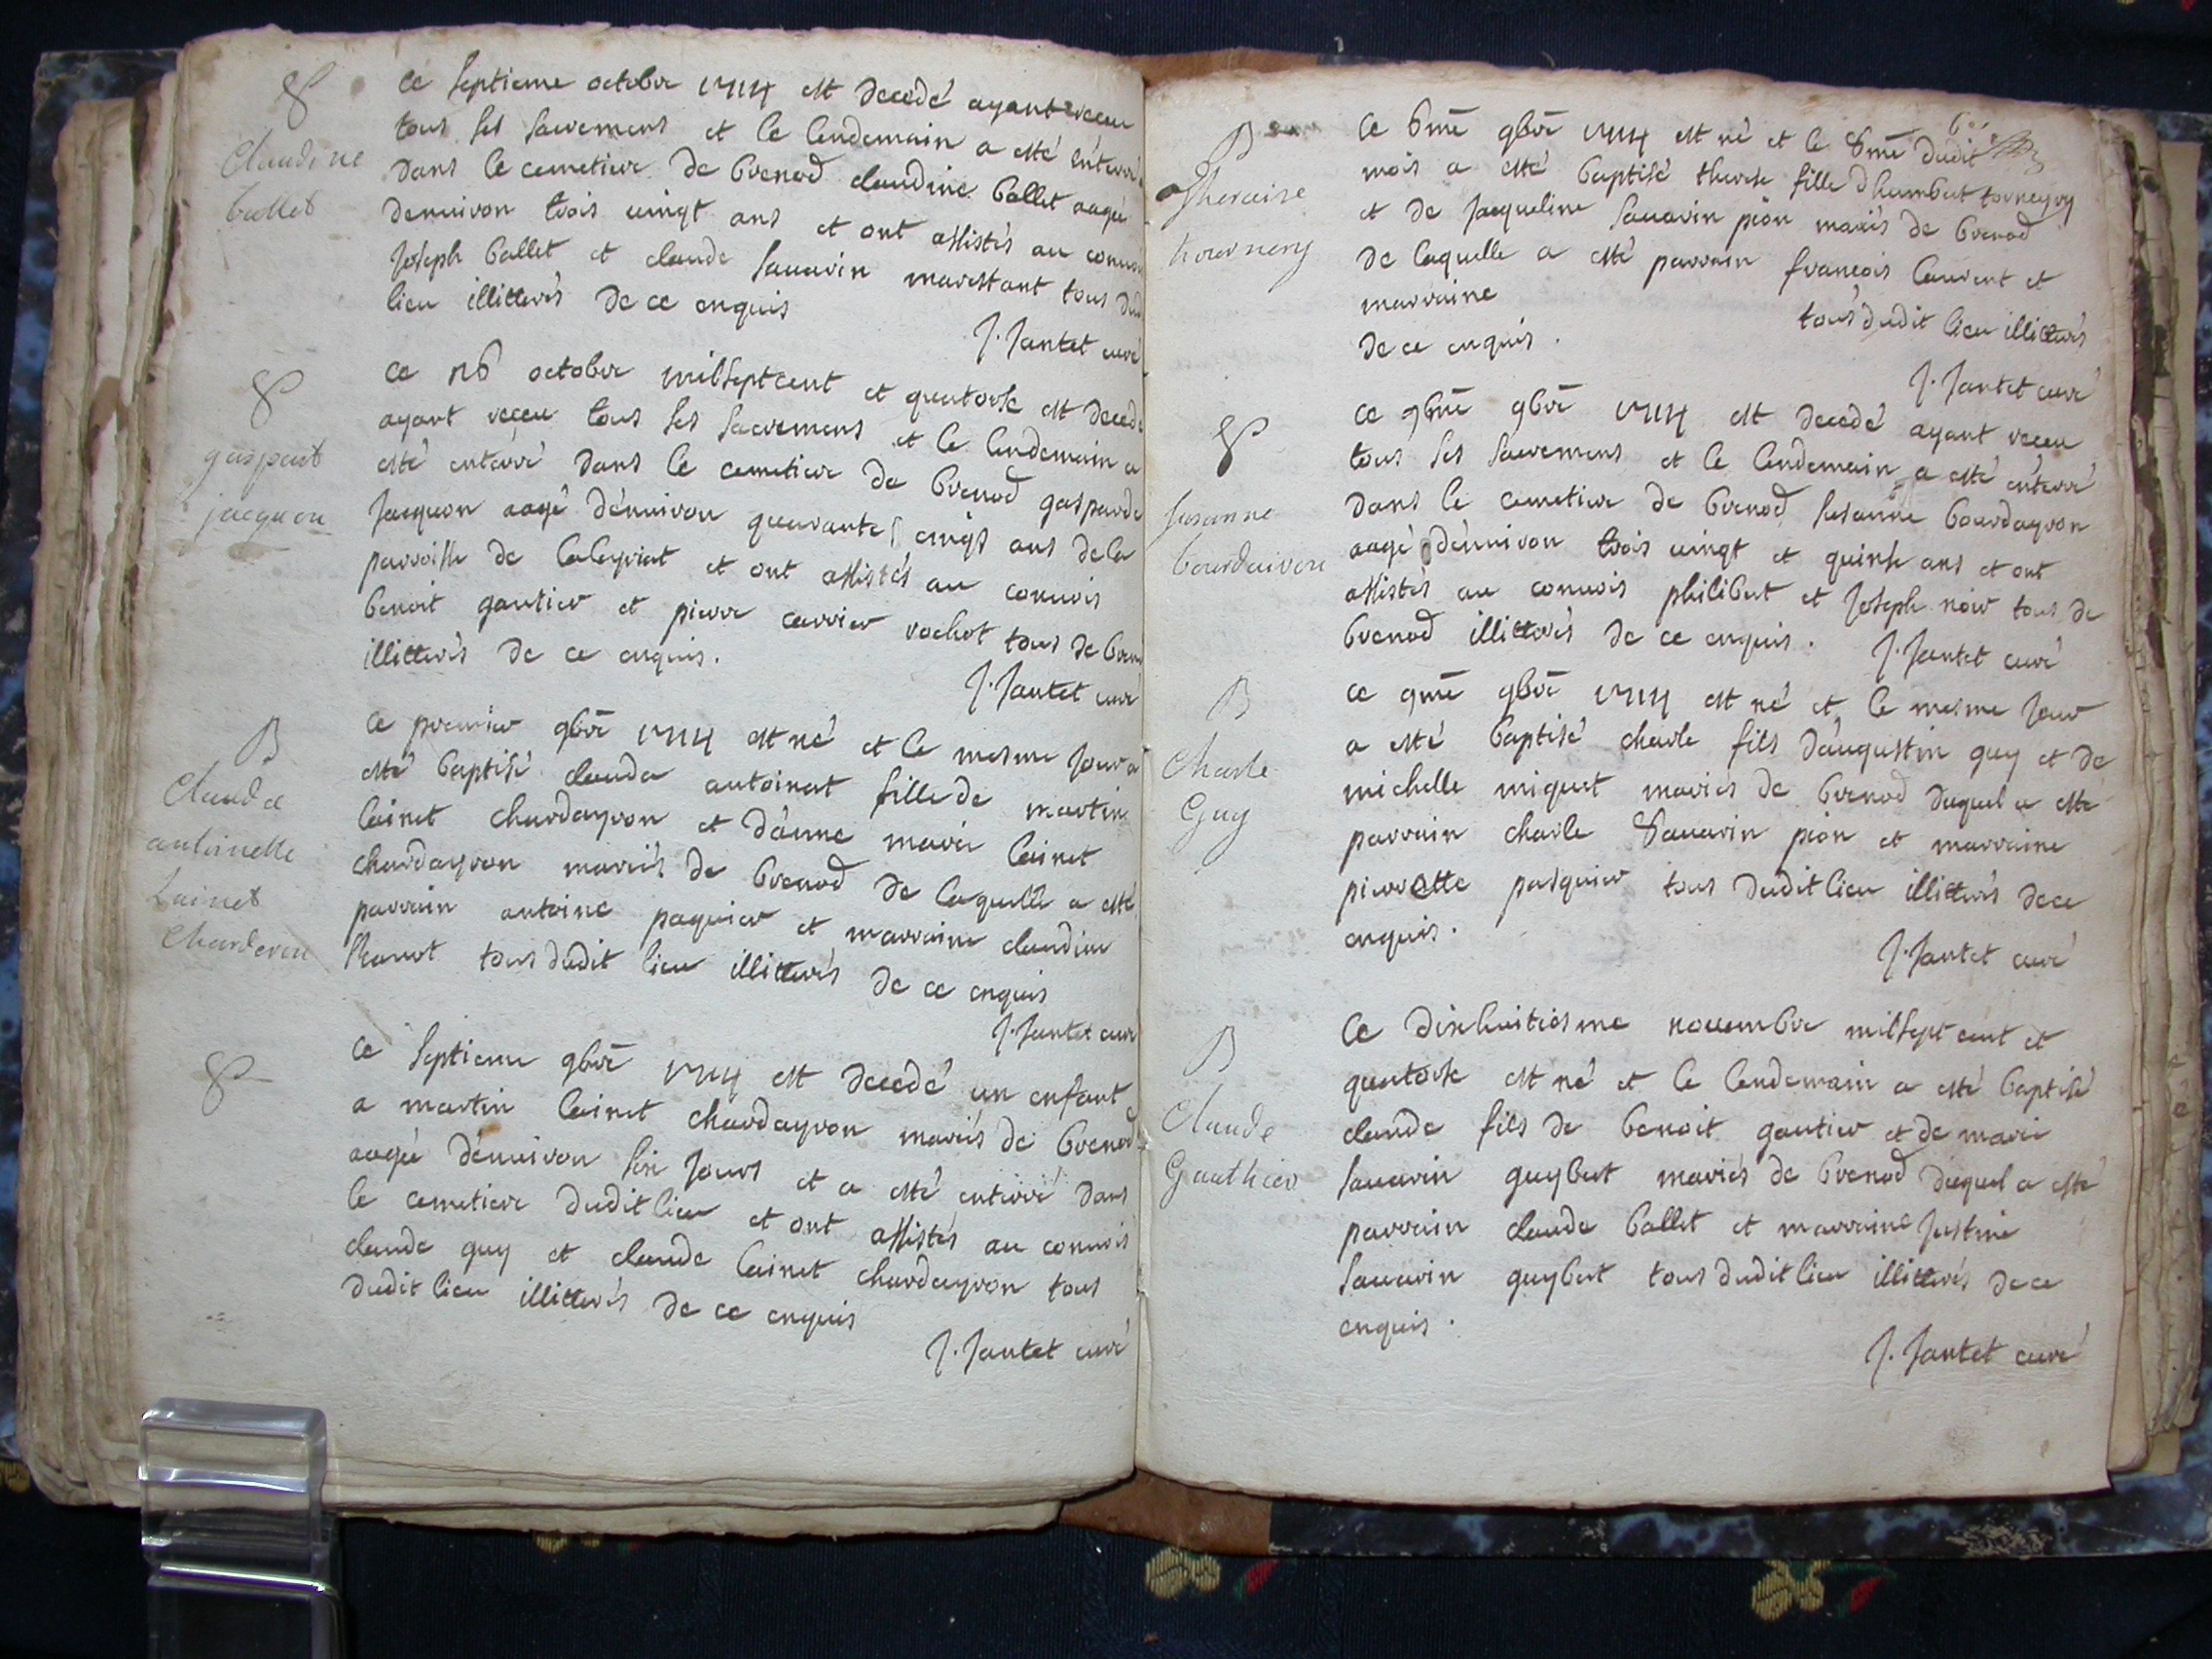 Claudine
ballet
ce septieme octobre 1714 est decedé ayant receu
tous ses sacremens et le lendemain a esté enterré
dans le cemetiere de brenod claudine ballet aagé
denuiron trois uingt ans et ont assistés au conuoi
Joseph ballet et claude sauarin marestant tous du
lieu illitterés de ce enquis
J. Jantet curé
gaspart
jacquon
ce octobre milseptcent et quatorse est decedé
ayant receu tous ses sacremens et le lendemain a
esté enterré dans le cemetiere de brenod gasparde
Jacquon aagé dénuiron quarante cinq ans de la
parroisse de laleyriat et ont assistés au conuois
benoit gautier et pierre carrier rochet tous de bren
illitterés de ce enquis.
J. Jantet curé
B
Claudea
antoinette
Lainet
Charderon
ce premier gbre 1714 est né et le mesme Jour a
esté baptisé clauda antoinat fille de martin
lainet chardayron et d'anne marie lainet
chardayron mariés de brenod de laquelle a esté
parrain antoine paquier et marraine claudine
tous dudit lieu illitterés de ce enquis
J. Jantet curé
ce septieme gbre 1714 est decedé un enfant
a martin lainet chardayron mariés de brenod
aagé dénuiron six Jours et a esté enterré dans
le cemetiere dudit lieu et ont assistés au conuois
claude guy et claude lainet chardayron tous
dudit lieu illitterés de ce enquis
J. Jantet curé
B
Theraise
tournery
ce 6me gbre 1714 est né et le 8me dudit
mois a esté baptisé therese fille dhumbert
et de Jacqueline sauarin pion mariés de brenod
de laquelle a esté parrain francois laurent et
marraine tous dudit lieu illitterés
de ce enquis.
J. Jantet curé
Susanne
bourdairon
ce gbre 1714 est decedé ayant receu
tous ses sacremens et le lendemain a esté enterré
dans le cemetiere de brenod susanne bourdayron
aagé dénuiron trois uingt et quinse ans et ont
assistés au conuois philibert et Joseph noir tous de
brenod illitterés de ce enquis. J. Jantet curé
B
Charle
Guy
ce 9me gbre 1714 est né et le mesme Jour
a esté baptisé charle fils d'augustin guy et de
michelle miquet mariés de brenod duquel a esté
parrain charle sauarin pion et marraine
pierrette pasquier tous dudit lieu illitterés de ce
enquis.
J. Jantet curé
B
Claude
Gauthier
ce dixhuitiesme nouembre milsept cent et
quatorse est né et le lendemain a esté baptisé
claude fils de benoit gautier et de marie
sauarin guybert mariés de brenod duquel a esté
parrain claude ballet et marraine Justine
sauarin guybert tous dudit lieu illitterés de ce
enquis.
J. Jantet curé